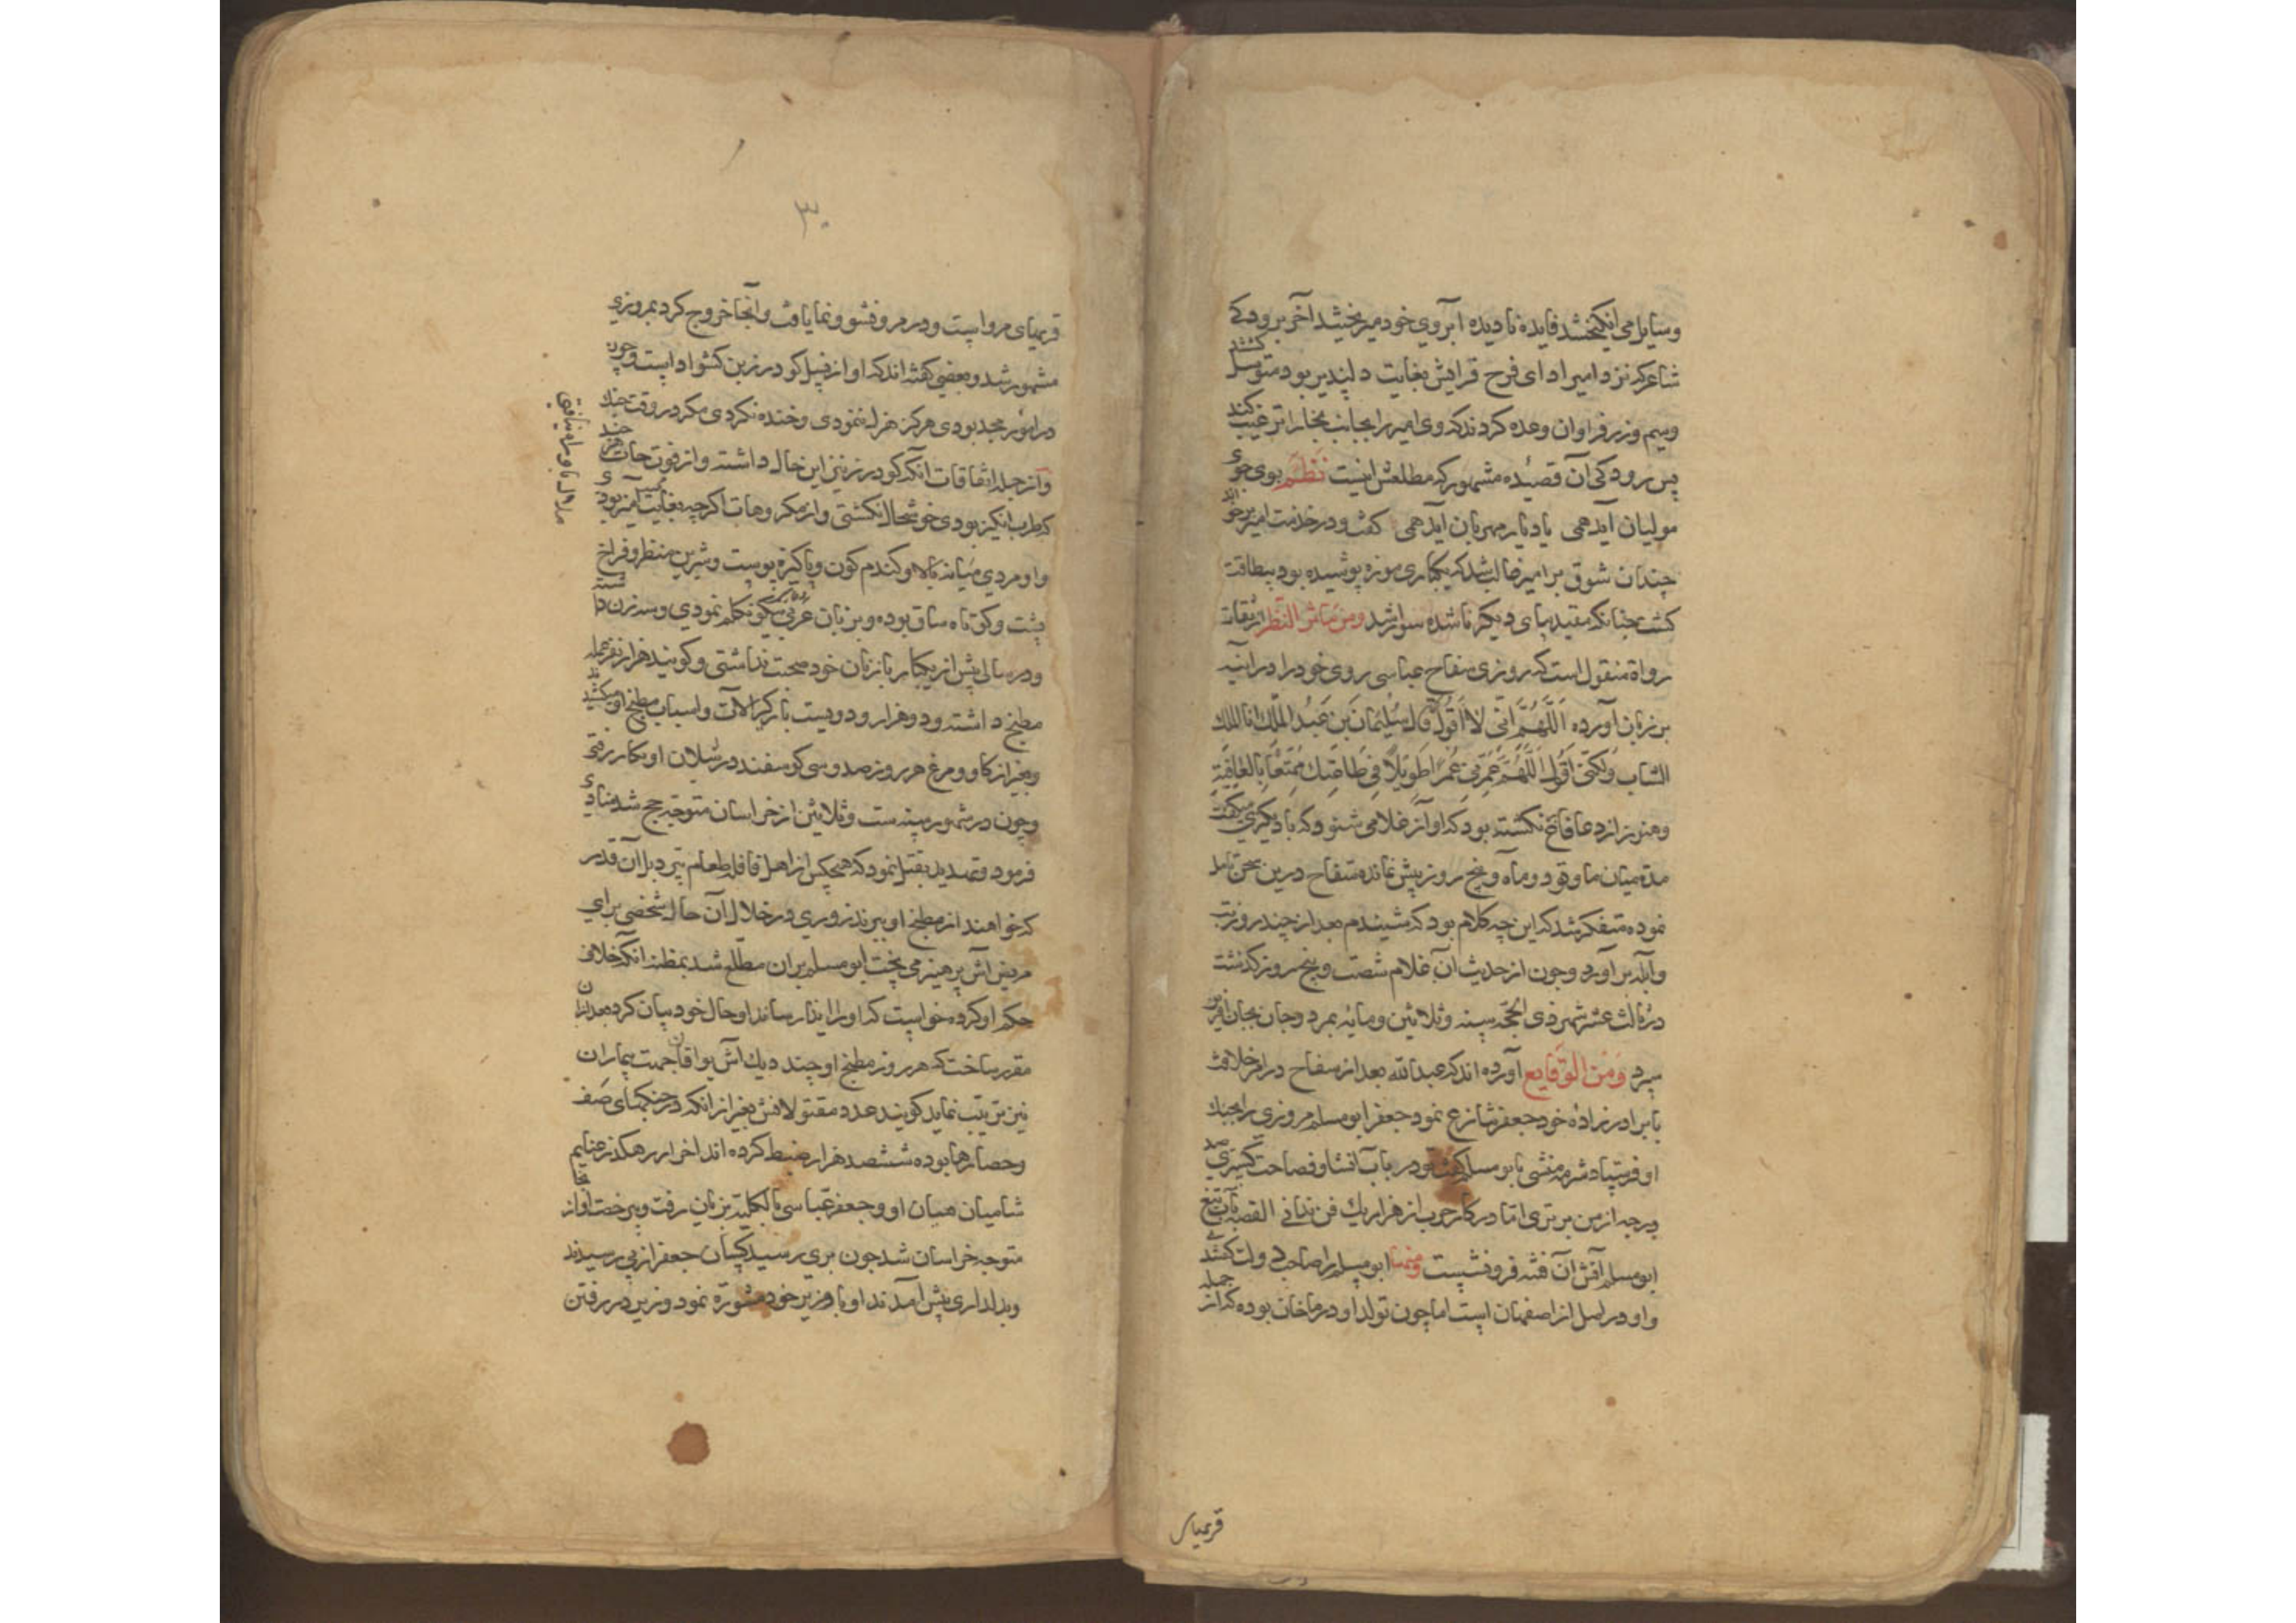 وسایل می انگیختند فایده نادیده ابروی خود میریختند آخر برودکی
شاعر که نزد امیر ادای فرح قرایش بغایت دلپذیر بود متوسل گشتند
وسیم وزر فراوان وعده کردند که وی امیر را بجانب بخارا ترغیب کند
پس رودکی آن قصیده مشهور که مطلعش اینست نظم بوی جوی
مولیان آید همی یاد یار مهربان آید همی گفت و در خدمت امیر برخواند
چندان شوق بر امیر غالب شد که یکباری موزه پوشیده بود بیطاقت
گشت چنانکه مقید بپای دیگر ناشده سوار شد ومن مآثر النظر از ثقات
رواة منقول است که روزی سفاح عباسی روی خود را در آئینه
بر زبان آورده اللهم انی لا اقول کما قال سلیمان بن عبد الملك انا الملك
الشاب ولکنی اقول اللهم عمرنی عمرا طویلا فی طاعتك ممتعا بالعافیة
وهنوز از دعا فاتح نگشته بود که اواز غلامی شنود که با دیگری میگفت
مدة میان ما وتو دو ماه وپنج روز بیش نمانده سفاح درین سخن تامل
نموده متفکر شد که این چه کلام بود که شنیدم بعد از چند روز تب
وآبله برآورد وچون از حدیث آن غلام شصت وپنج روز گذشت
در ثالث عشر شهر ذی الحجه سنه وثلاثین ومایه بمرد وجان بجان آفرین
سپرد ومن الوقایع آورده اند که عبدالله بعد از سفاح در امر خلافت
با برادر زاده خود جعفر تنازع نمود جعفر ابو مسلم مروزی را بجنك
او فرستاد منشی بابو مسلم گفت تو در باب انشا وفصاحت گیری صد
درجه از من برتری اما در کار حرب از هزار یك فن ندانی القصه بآب تیغ
ابومسلم آتش آن فتنه فرو نشست ومنها ابو مسلم را صاحب دولت گفتندی
واو در اصل از اصفهان است اما چون تولد او در ماخان بوده که از جمله
قریهای
۳۰
قریهای مرو است ودر مرو نشو ونما یافت وآنجا خروج کرد بمروزی
مشهور شد وبعضی گفته اند که او از نسل گودرز بن کشواد است وچون
در امور مجد بودی هرگز هزل ننمودی وخنده نکردی مگر در وقت جنك
وآنز جمله اتفاقات آنکه گودرز نیز این حال داشته واز فتوحات هر چند
که طرب انگیز بودی خوشحال نگشتی واز مکروهات اگرچه بغایت آمیز بودی
واو مردی میانه بالا وگندم گون وپاکیزه پوست وشیرین منظر وفراخ
پشت وکوتاه ساق بوده وبزبان عربی نیکو تکلم نمودی وسه زن داشته
ودر سالی بیش از یکبار با زنان خود صحبت نداشتی وگویند هزار نفر عمله
مطبخ داشته ودو هزار ودویست بارگیر آلات واسباب مطبخ او میکشیدند
وبغیر از گاو ومرغ هر روز صد وسی گوسفند در شیلان او بکار رفتی
وچون در شهور سنه ست وثلاثین از خراسان متوجه حج شد منادی
فرمود وتهدید بقتل نمود که هیچکس از اهل قافله طعام نپزد بل آن قدر
که خواهند از مطبخ او ببرند زوزی در خلال آن حال شخصی برای
مریض آش پرهیز می پخت ابو مسلم بر آن مطلع شد بمظنه آنکه خلاف
حکم او کرده خواست که او را ایذا رساند او حال خود بیان کرد بعد از آن
مقرر ساخت که هر روز مطبخ او چند دیك آش بواقان جهت بیماران
نیز ترتیب نماید گویند عدد مقتولانش بغیر از آنکه در جنگهای صف
وحصارها بوده ششصد هزار ضبط کرده اند اخر از رهگذر غنایم
شامیان میان او وجعفر عباسی بالکلیه بزبان رفت
متوجه خراسان شد چون بری رسید کسان جعفر از پی رسیدند
وبدلداری پیش آمدند او با وزیر خود مشورة نمود وزیر در رفتن